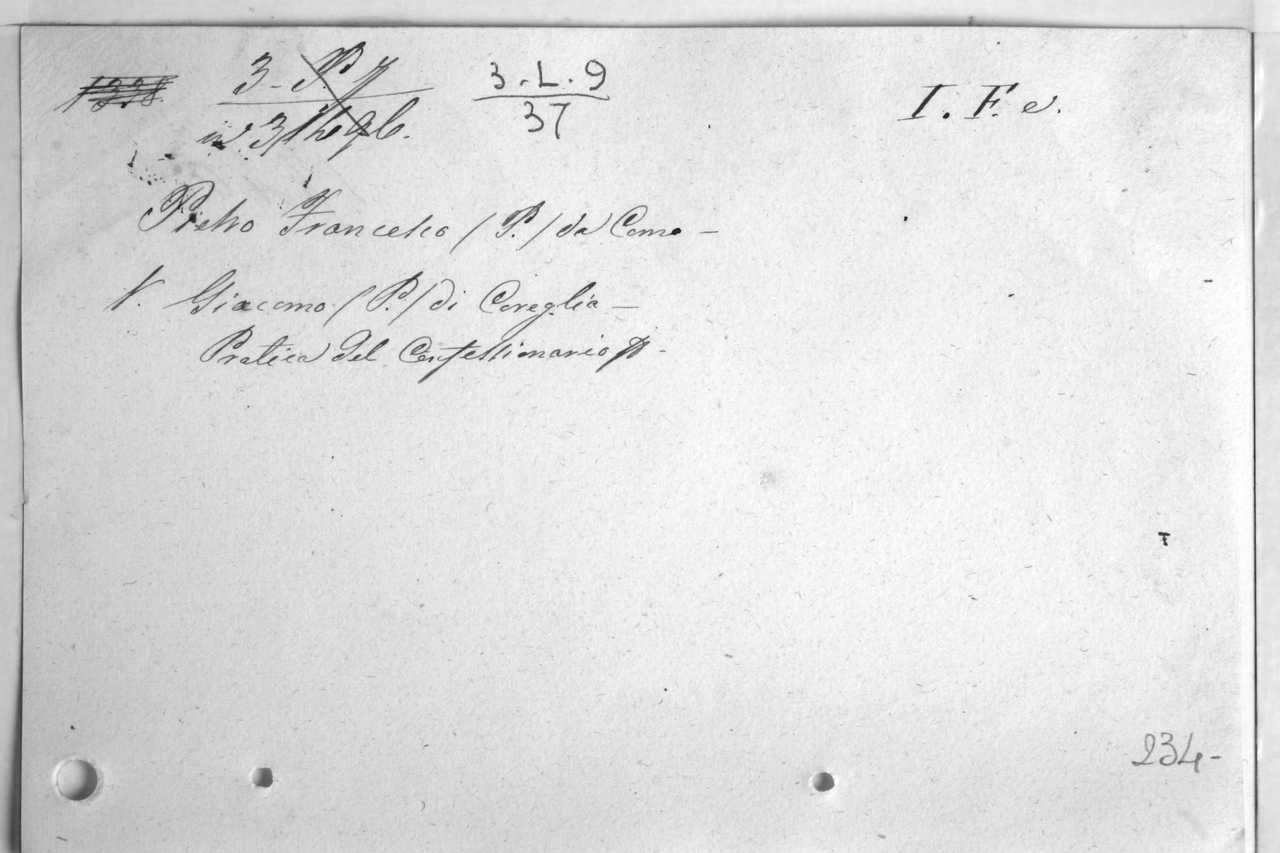 3.L.9
37
I. F. e.
Pietro Francesco (P.) da Como —
V. Giacomo (P.) di Coreglia —
Pratica del Confessionario
234-